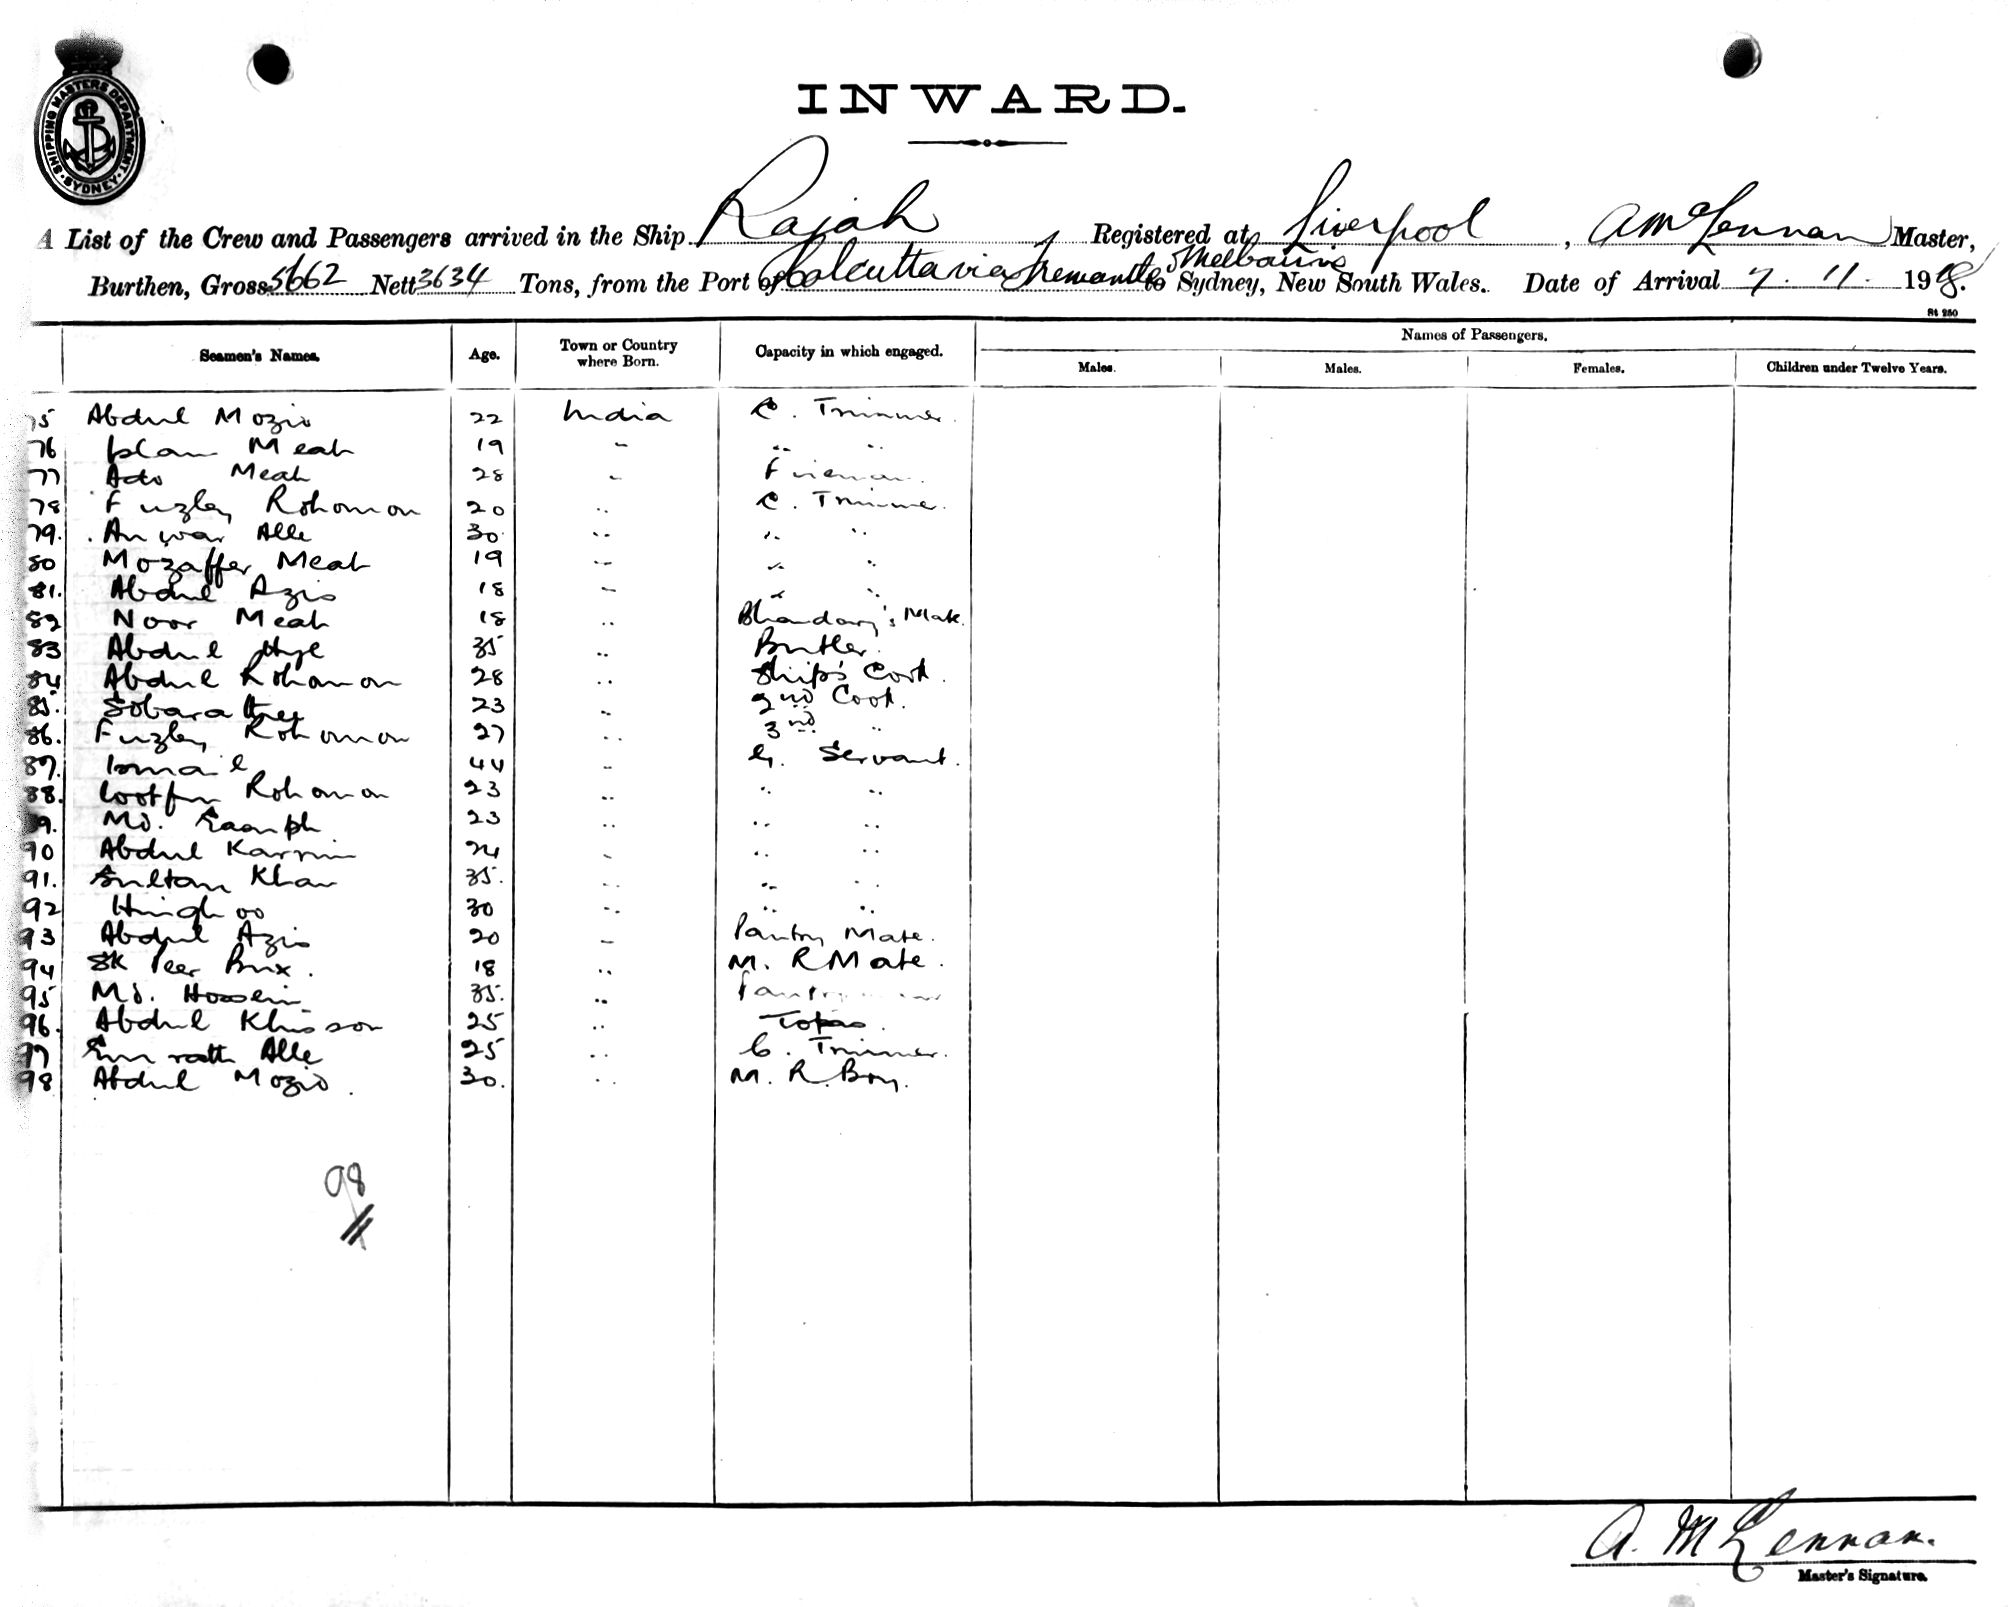 SHIPPING MASTERS DEPARTMENT · SYDNEY ·
INWARD.
A List of the Crew and Passengers arrived in the Ship Rajah Registered at Liverpool, A McLennan Master,
Burthen, Gross 5662 Nett 3634 Tons, from the Port of Calcutta via Fremantle & Melbourne to Sydney, New South Wales. Date of Arrival 7. 11. 1918.
St 250
Seamen's Names. Age. Town or Country where Born. Capacity in which engaged. Names of Passengers.
Males. Males. Females. Children under Twelve Years.
75 Abdul Mozid 22 India C. Trimmer.
76 Islam Meah 19 " " "
77 Meah 28 " Fireman.
78 Fuzley Rohomon 20 " C. Trimmer.
79. Anwar Alle 30 " " "
80 Mozaffer Meah 19 " " "
81. Abdul Azis 18 " " "
82 Noor Meah 18 " Bhandary's Mate.
83 Abdul Hye 35 " Butler.
84 Abdul Rohomon 28 " Ship's Cook.
85. 23 " 2nd Cook.
86. Fuzley Rohomon 27 " 3rd "
87. Ismail 44 " G. Servant.
88. Lootfur Rohomon 23 " " "
89. Md. 23 " " "
90 Abdul Karrim 24 " " "
91. Sultan Khan 35. " " "
92 Hinghoo 30 " " "
93 Abdul Azis 20 " Pantry Mate.
94 Sk Peer Bux. 18 " M. R Mate.
95 Md. Hossein 35. " Pantryman
96. Abdul Khisson 25 " Topas.
97 Alle 25 " C. Trimmer.
98 Abdul Mozid. 30. " M. R. Boy.
98
A. McLennan.
Master's Signature.